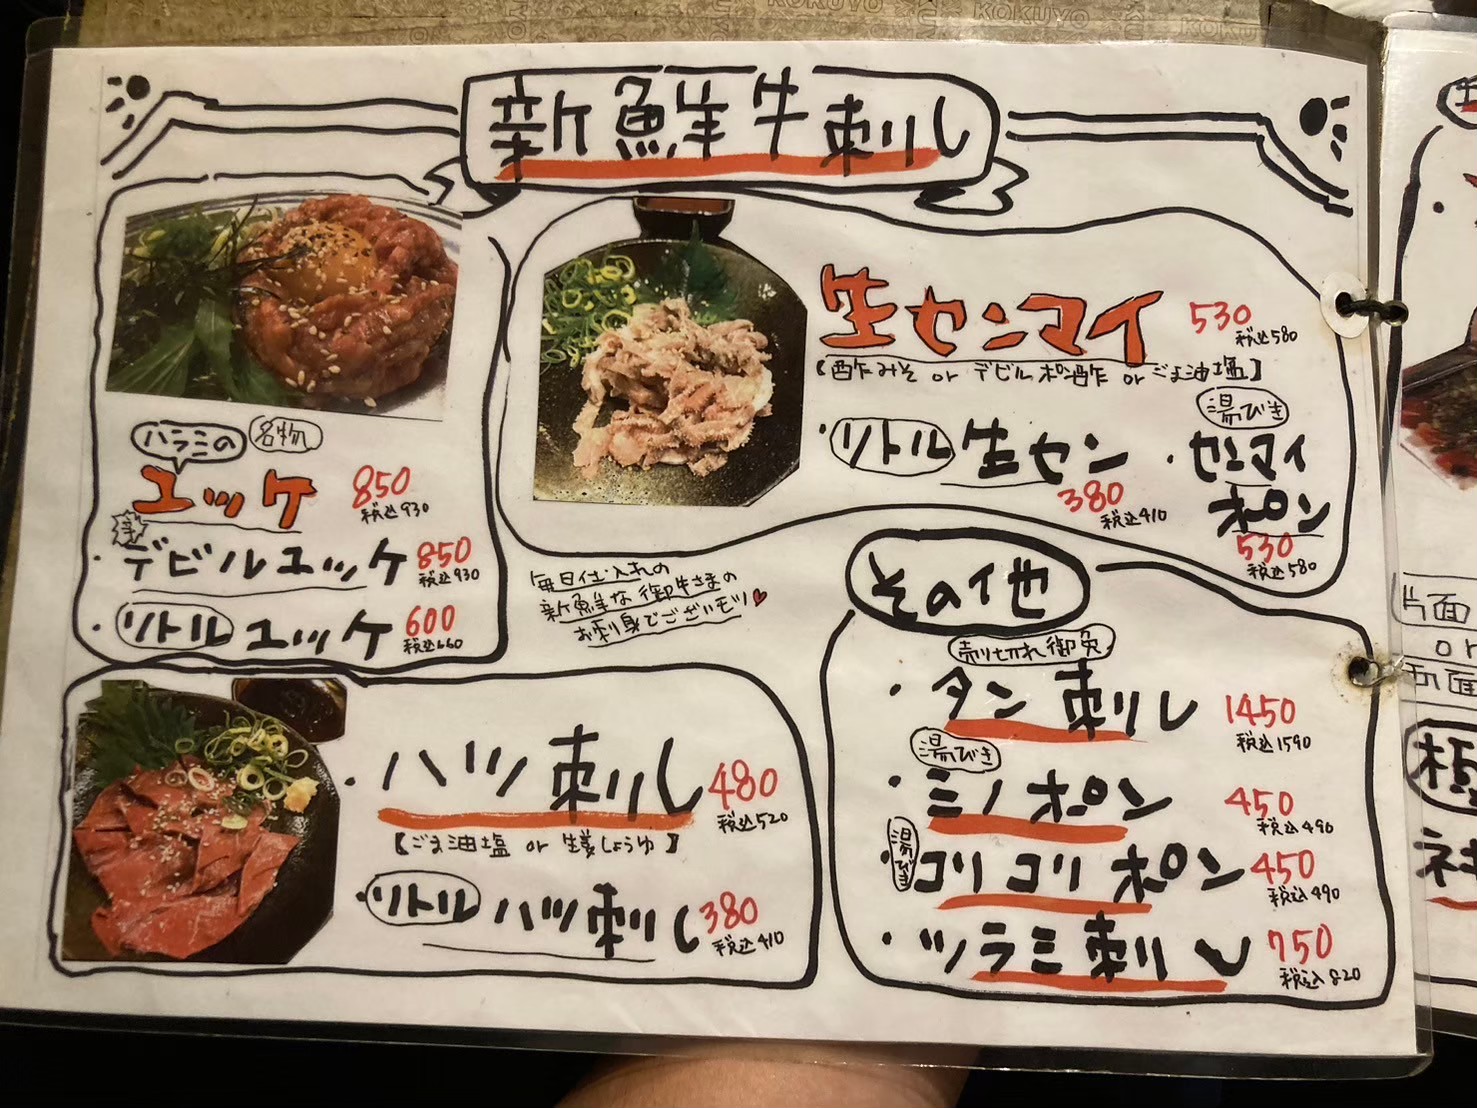 KOKUYO
新鮮牛刺し
ハラミの
名物
ユッケ 850
税込930
・デビルユッケ 850
税込930
・リトルユッケ 600
税込660
生センマイ 530
税込580
【酢みそ or デビルポン酢 or ごま油塩】
・リトル生セン
380
税込410
湯びき
・センマイ
ポン
530
税込580
毎日仕入れの
新鮮な御牛さまの
お刺身でございモツ♥
・ハツ刺し 480
税込520
【ごま油塩 or 生姜しょうゆ】
・リトルハツ刺し 380
税込410
その他
売り切れ御免
・タン刺し 1450
税込1590
湯びき
・ミノポン 450
税込490
湯びき
・コリコリポン 450
税込490
・ツラミ刺し 750
税込820
片面
or